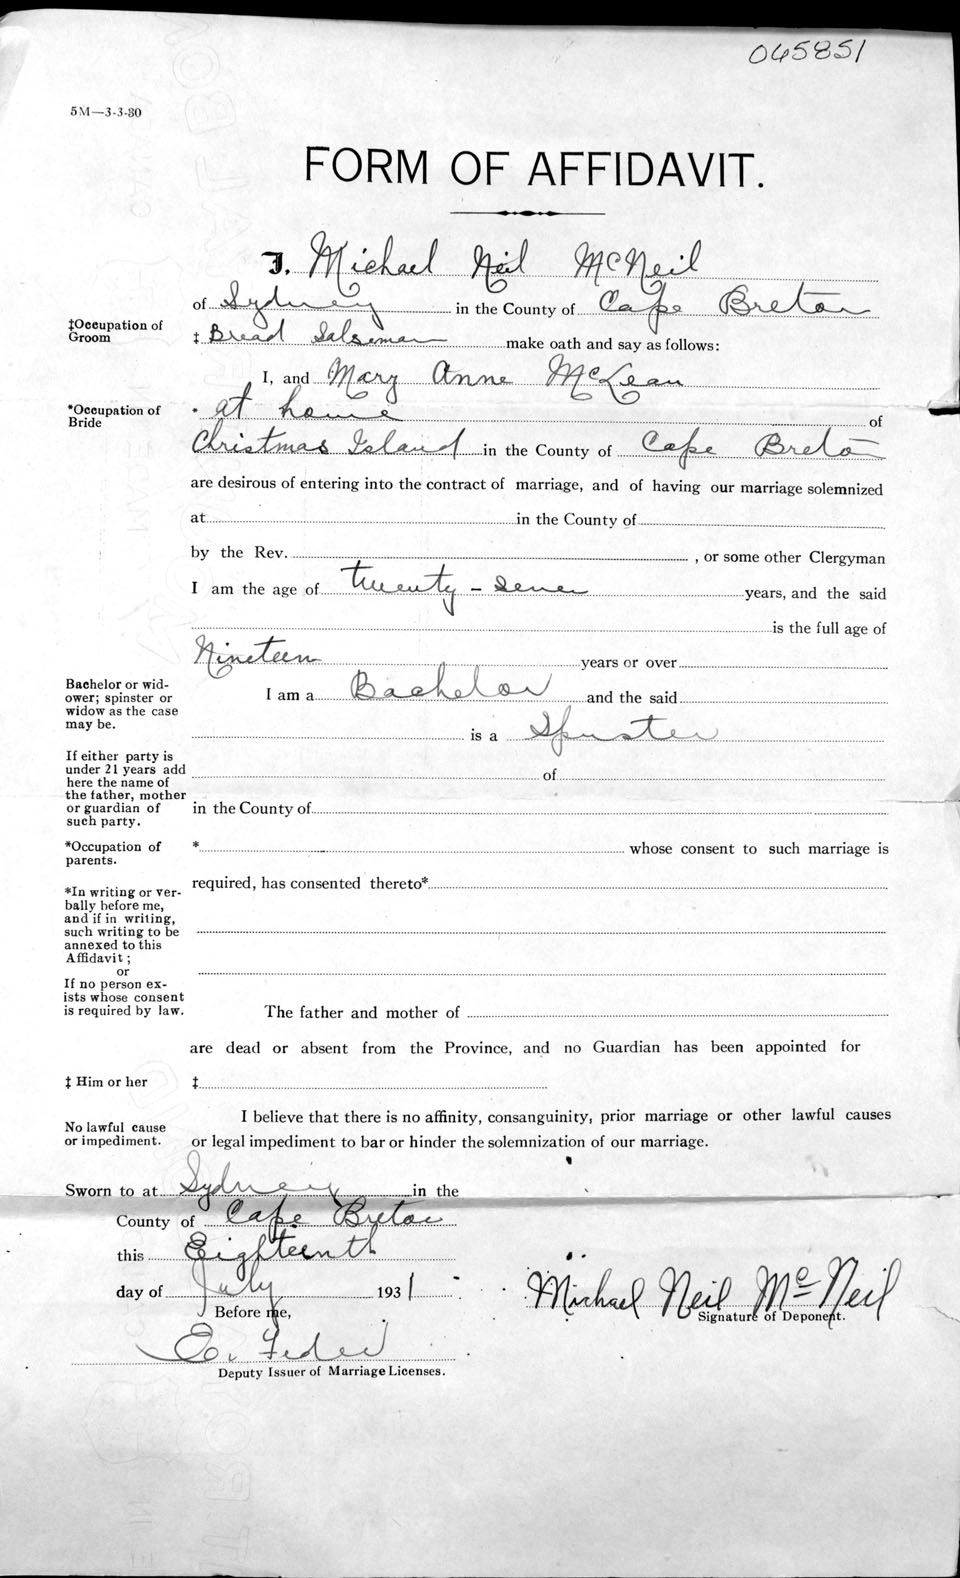 065851
5M—3-3-30
FORM OF AFFIDAVIT.
I, Michael Neil McNeil
of Sydney in the County of Cape Breton
‡Occupation of Groom
‡ Bread Salesman make oath and say as follows:
I, and Mary Anne McLean
*Occupation of Bride
* at home of
Christmas Island in the County of Cape Breton
are desirous of entering into the contract of marriage, and of having our marriage solemnized
at in the County of
by the Rev. , or some other Clergyman
I am the age of twenty-seven years, and the said
is the full age of
Nineteen years or over
Bachelor or wid-
ower; spinster or
widow as the case
may be.
I am a Bachelor and the said
is a Spinster
If either party is
under 21 years add
here the name of
the father, mother
or guardian of
such party.
of
in the County of
*Occupation of
parents.
* whose consent to such marriage is
required, has consented thereto*
*In writing or ver-
bally before me,
and if in writing,
such writing to be
annexed to this
Affidavit;
or
If no person ex-
ists whose consent
is required by law.
The father and mother of
are dead or absent from the Province, and no Guardian has been appointed for
‡ Him or her ‡
No lawful cause
or impediment.
I believe that there is no affinity, consanguinity, prior marriage or other lawful causes
or legal impediment to bar or hinder the solemnization of our marriage.
Sworn to at Sydney in the
County of Cape Breton
this Eighteenth
day of July 1931
Before me,
Michael Neil McNeil
Signature of Deponent.
Deputy Issuer of Marriage Licenses.